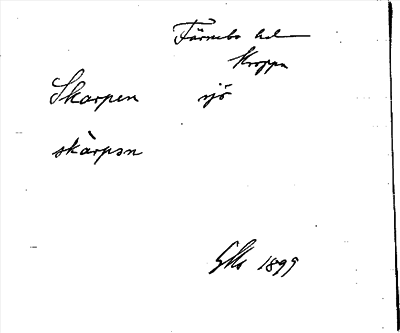 Färnebo hd
Kroppa
Skarpen sjö
skàrpən
1899